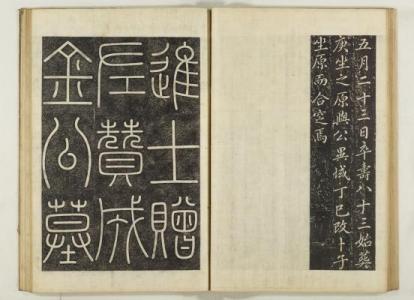 五月二十三日卒壽八十三始葬
庚坐之原與公異域丁巳改卜子
坐原而合窆焉
進士贈
左贊成
金公墓